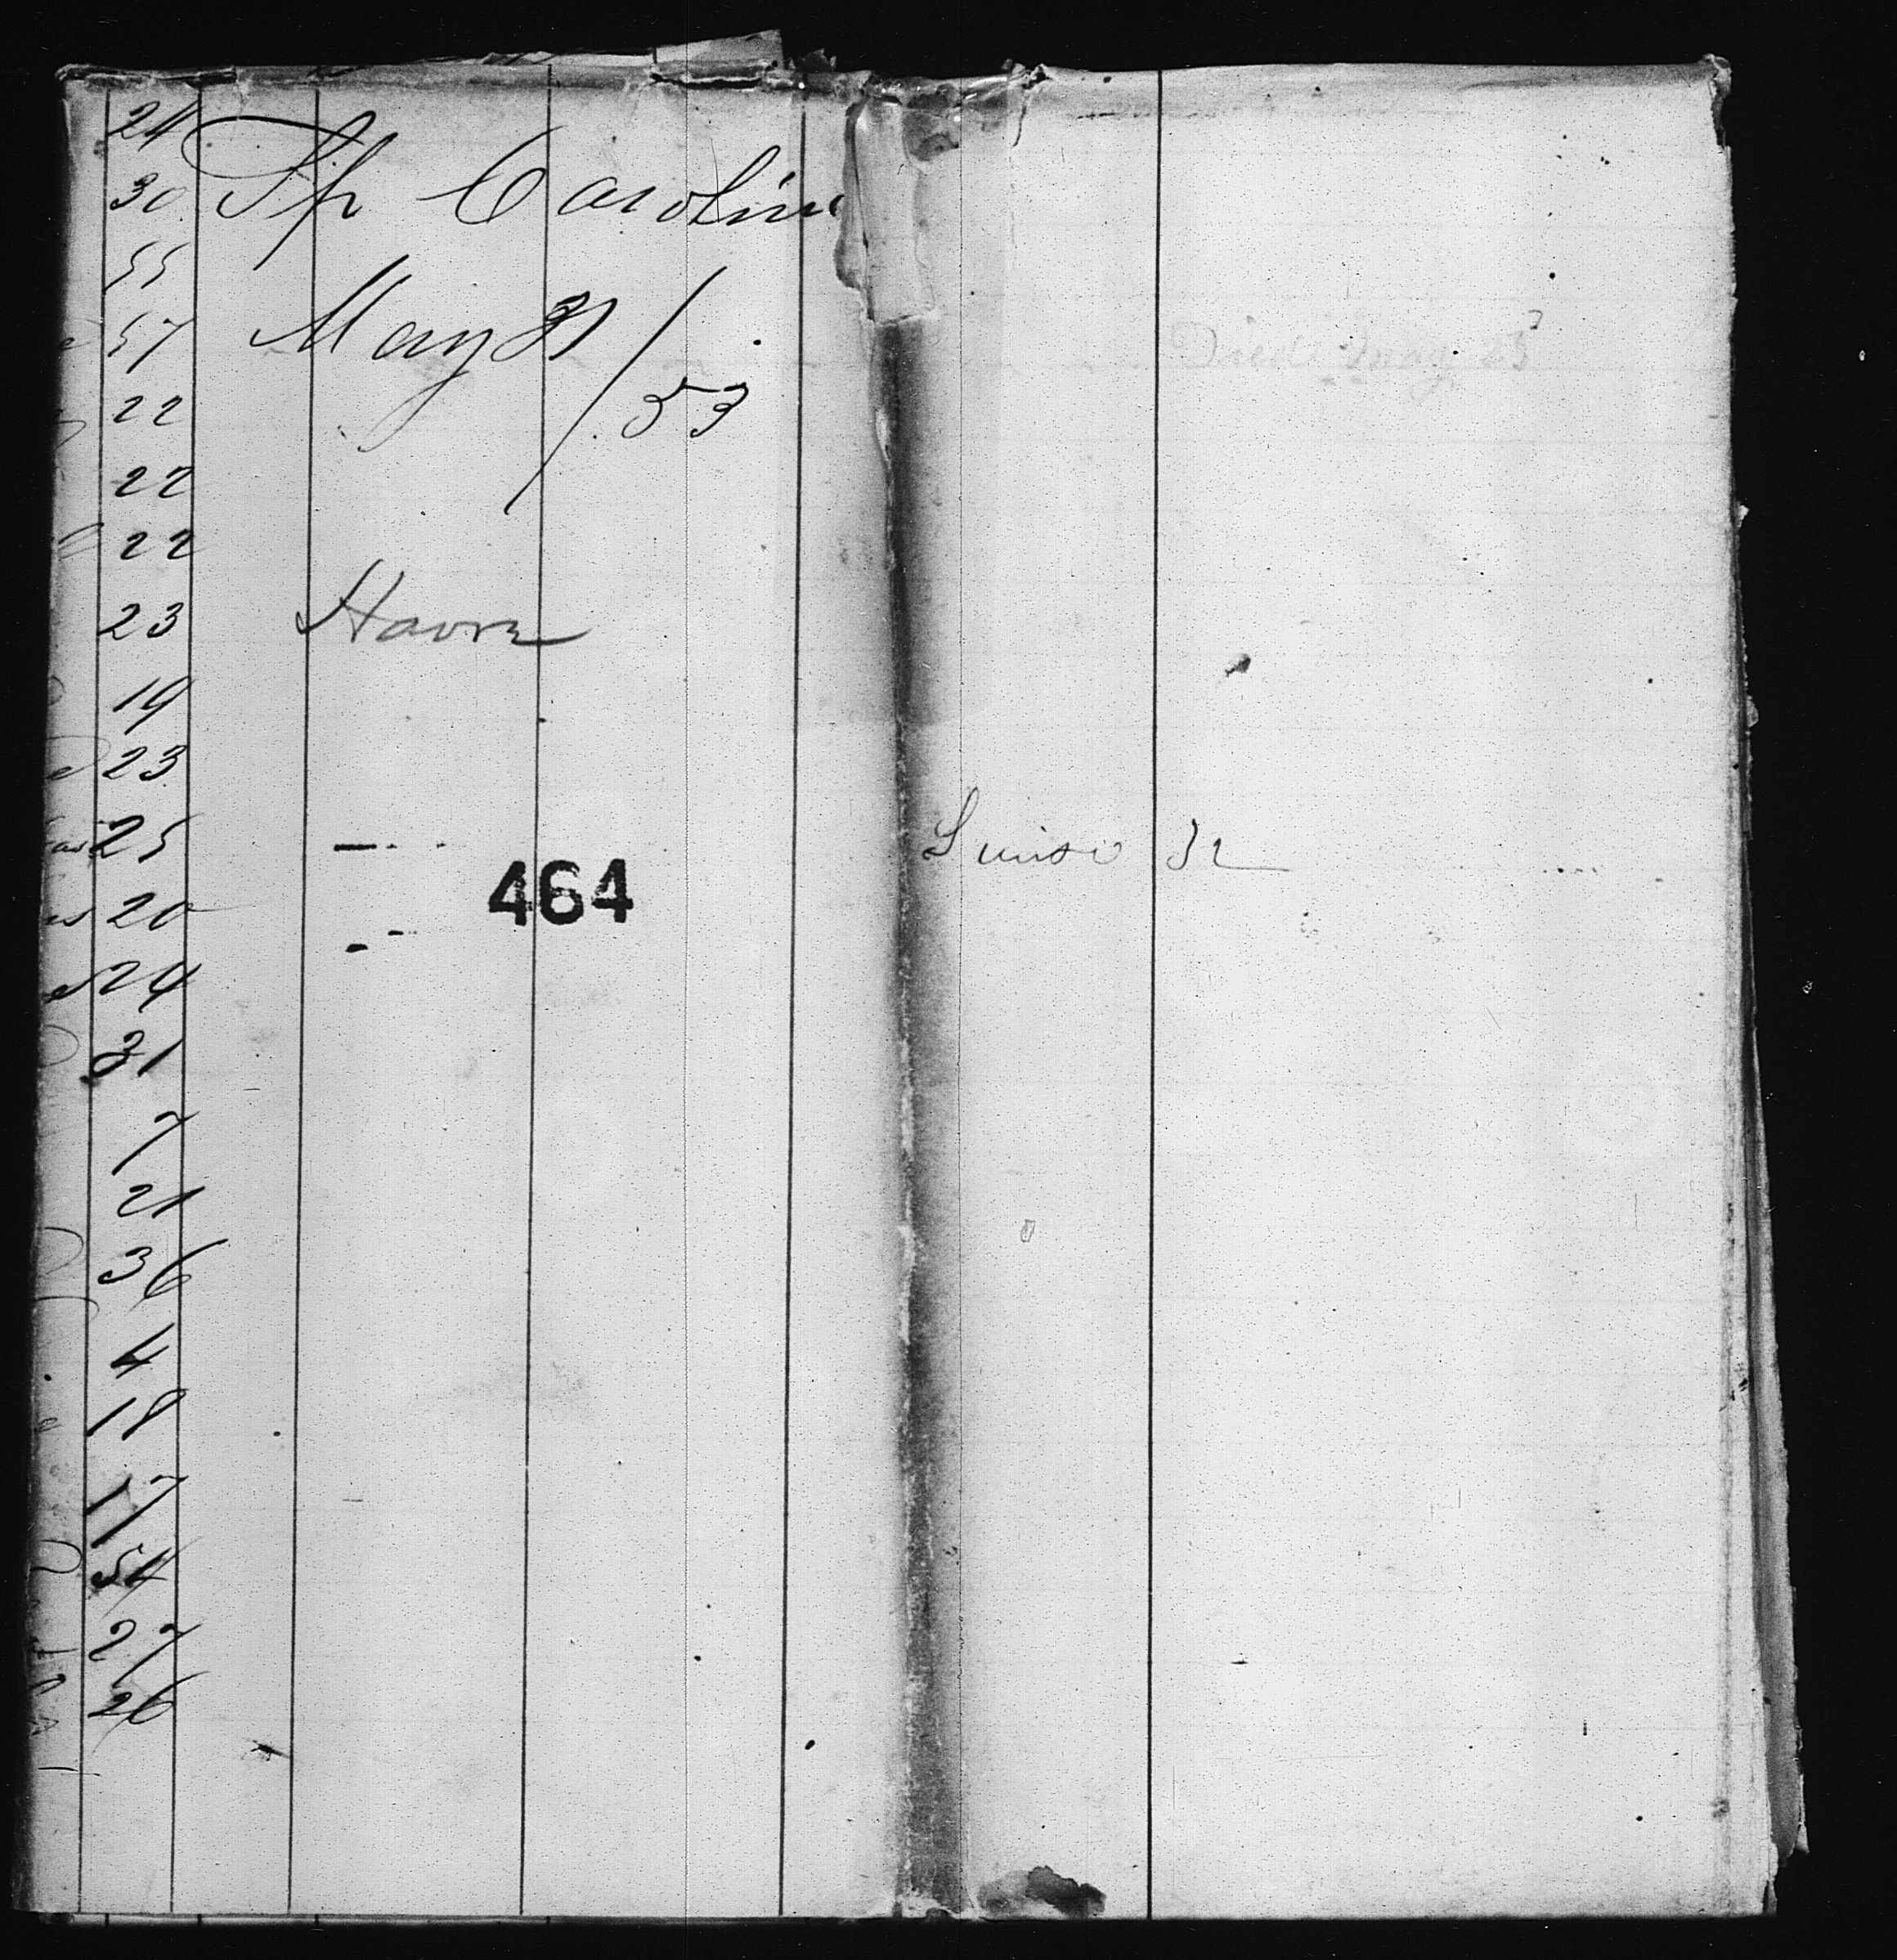 24
30 Sp Caroline
55
57 May 31 / 53
22
22
22
23 Havre
19
23
25
20
24
31
7
21
36
4
18
17
54
27
26
464
Died May 23
32